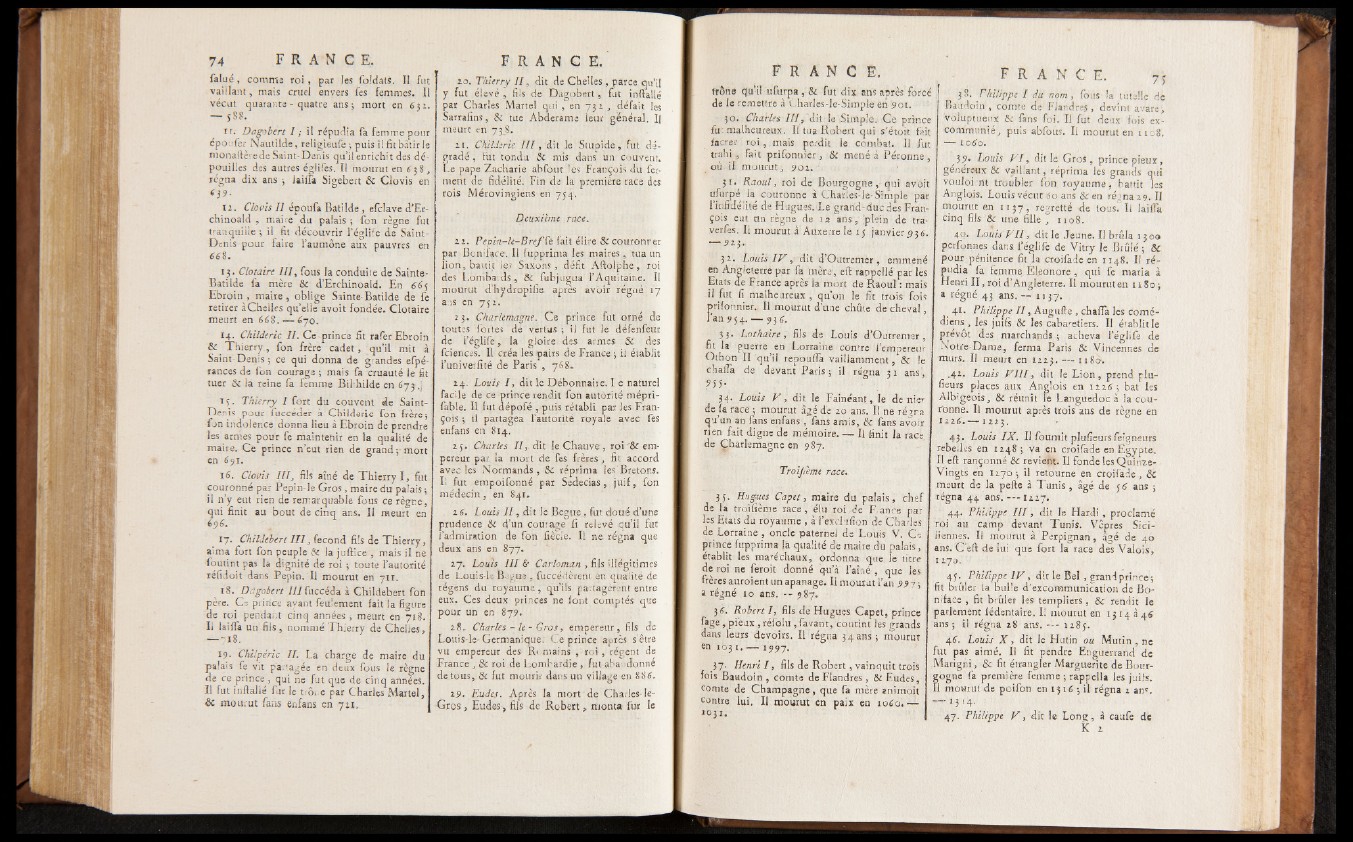 74 FRANCE.
salué, comme roi, par les soldats. Il fut
vaillant, mais cruel envers ses femmes. Il
vécut quarante-quatre ans; mort en 632.
— 588.
11. Dagobert I; il répudia sa femme pour
épouser Nautilde, religieuse; puis il fit bâtir le
monastère de Saint-Denis qu'il enrichit des dé-
pouilles des autres églises. Il mourut en 638,
régna dix ans; laissa Sigebert & Clovis en
639.
12. Clovis II épousa Batilde, esclave d'Er-
chinoald, maire du palais; son règne fut
tranquille; il fit découvrir l'église de Saint-
Denis pour faire l'aumône aux pauvres en
668.
13. Clotaire III, sous la conduite de Sainte-
Batilde sa mère & d'Erchinoald. En 665
Ebroin, maire, oblige Sainte-Batilde de se
retirer à Chelles qu'elle avoit fondée. Clotaire
meurt en 668. — 670.
14. Childeric II. Ce prince fit raser Ebroin
& Thierry, son frère cadet, qu'il mit à
Saint-Denis; ce qui donna de grandes espé-
rances de son courage; mais sa cruauté le fit
tuer & la reine sa femme Bilihilde en 673.
15. Thierry I sort du couvent de Saint-
Denis pour succéder à Childeric son frère;
son indolence donna lieu à Ebroin de prendre
les armes pour se maintenir en la qualité de
maire. Ce prince n'eut rien de grand; mort
en 691.
16. Clovis III, fils aîné de Thierry I, fut
couronné par Pepin-le-Gros, maire du palais;
il n'y eut rien de remarquable sous ce règne,
qui finit au bout de cinq ans. Il meurt en
696.
17. Childebert III, second fils de Thierry,
aima fort son peuple & la justice, mais il ne
soutint pas la dignité de roi; toute l'autorité
résidoit dans Pepin. Il mourut en 711.
18. Dagobert III succéda à Childebert son
père. Ce prince ayant seulement fait la figure
de roi pendant cinq années, meurt en 718.
Il laissa un fils, nommé Thierry de Chelles,
— 718.
19. Chilpéric II. La charge de maire du
palais se vit partagée en deux sous le règne
de ce prince, qui ne fut que de cinq années.
Il fut installé sur le trône par Charles Martel,
& mourut sans enfans en 721.
FRANCE.
20. Thierry II, dit de Chelles, parce qu'il
y fut élevé, fils de Dagobert, fut installé
par Charles Martel qui, en 732, défait les
Sarrasins, & tue Abderame leur général. Il
meurt en 738.
21. Childeric III, dit le Stupide, fut dé-
gradé, fut tondu & mis dans un couvent.
Le pape Zacharie absout les François du ser-
ment de fidélité. Fin de la première race des
rois Mérovingiens en 754.
Deuxième race.
22. Pepin-le-Bref se fait élire & couronner
par Boniface. Il supprima les maires, tua un
lion, battit les Saxons, défit Astolphe, roi
des Lombards, & subjugua l'Aquitaine. Il
mourut d'hydropisie après avoir régné 17
ans en 752.
23. Charlemagne. Ce prince fut orné de
toutes sortes de vertus; il fut le défenseur
de l'église, la gloire des armes & des
sciences. Il créa les pairs de France; il établit
l'université de Paris, 768.
24. Louis I, dit le Débonnaire. Le naturel
facile de ce prince rendit son autorité mépri-
sable. Il fut déposé, puis rétabli par les Fran-
çois; il partagea l'autorité royale avec ses
enfans en 814.
25. Charles II, dit le Chauve, roi & em-
pereur par la mort de ses frères, fit accord
avec les Normands, & réprima les Bretons.
Il fut empoisonné par Sedecias, juif, son
médecin, en 841.
26. Louis II, dit le Begue, fut doué d'une
prudence & d'un courage si relevé qu'il fut
l'admiration de son siècle. Il ne régna que
deux ans en 877.
27. Louis III & Carloman, fils illégitimes
de Louis-le-Begue, succédèrent en qualité de
régens du royaume, qu'ils partagèrent entre
eux. Ces deux princes ne sont comptés que
pour un en 879.
28. Charles-le-Gros, empereur, fils de
Louis-le-Germanique. Ce prince après s'être
vu empereur des Romains, roi, régent de
France, & roi de Lombardie, fut abandonné
de tous, & fut mourir dans un village en 886.
29. Eudes. Après la mort de Charles-le-
Gros, Eudes, fils de Robert, monta sur le
FRANCE.
trône qu'il usurpa, & fut dix ans après forcé
de le remettre à Charles-le-Simple en 901.
30. Charles III, dit le Simple. Ce prince
fut malheureux. Il tua Robert qui s'étoit fait
sacrer roi, mais perdit le combat. Il fut
trahi, fait prisonnier, & mené à Péronne,
où il mourut, 902.
31. Raoul, roi de Bourgogne, qui avoit
usurpé la couronne à Charles-le-Simple par
l'infidélité de Hugues. Le grand-duc des Fran-
çois eut un règne de 12 ans, plein de tra-
verses. Il mourut à Auxerre le 15 janvier 936.
— 923.
32. Louis IV, dit d'Outremer, emmené
en Angleterre par sa mère, est rappellé par les
Etats de France après la mort de Raoul: mais
il fut si malheureux, qu'on le fit trois fois
prisonnier. Il mourut d'une chûte de cheval,
l'an 954. — 936.
33. Lothaire, fils de Louis d'Outremer,
fit la guerre en Lorraine contre l'empereur
Othon II qu'il repoussa vaillamment, & le
chassa de devant Paris; il régna 31 ans,
955.
34. Louis V, dit le Fainéant, le dernier
de sa race; mourut âgé de 20 ans. Il ne régna
qu'un an sans enfans, sans amis, & sans avoir
rien fait digne de mémoire. — Il finit la race
de Charlemagne en 987.
Troisième race.
35. Hugues Capet, maire du palais, chef
de la troisième race, élu roi de France par
les Etats du royaume, à l'exclusion de Charles
de Lorraine, oncle paternel de Louis V. Ce
prince supprima la qualité de maire du palais,
établit les maréchaux, ordonna que le titre
de roi ne seroit donné qu'à l'aîné, que les
frères auroient un apanage. Il mourut l'an 997;
a régné 10 ans. -- 987.
36. Robert I, fils de Hugues Capet, prince
sage, pieux, résolu, savant, contint les grands
dans leurs devoirs. Il régna 34 ans; mourut
en 1031. — 1997.
37. Henri I, fils de Robert, vainquit trois
fois Baudoin, comte de Flandres, & Eudes,
comte de Champagne, que sa mère animoit
contre lui. Il mourut en paix en 1060. —
1031.
FRANCE. 75
38. Philippe I du nom, sous la tutelle de
Baudoin, comte de Flandres, devint avare,
voluptueux & sans foi. Il fut deux fois ex-
communié, puis absous. Il mourut en 1108.
— 1060.
39. Louis VI, dit le Gros, prince pieux,
généreux & vaillant, réprima les grands qui
vouloient troubler son royaume, battit les
Anglois. Louis vécut 60 ans & en régna 29. Il
mourut en 1137, regretté de tous. Il laissa
cinq fils & une fille, 1108.
40. Louis VII, dit le Jeune. Il brûla 1300
personnes dans l'église de Vitry le Brûlé; &
pour pénitence fit la croisade en 1148. Il ré-
pudia sa femme Eleonore, qui se maria à
Henri II, roi d'Angleterre. Il mourut en 1180;
a régné 43 ans. -- 1137.
41. Philippe II, Auguste, chassa les comé-
diens, les juifs & les cabaretiers. Il établit le
prévôt des marchands; acheva l'église de
Notre-Dame, ferma Paris & Vincennes de
murs. Il meurt en 1223. — 1180.
42. Louis VIII, dit le Lion, prend plu-
sieurs places aux Anglois en 1226; bat les
Albigeois, & réunit le Languedoc à la cou-
ronne. Il mourut après trois ans de règne en
1226. — 1223.
43. Louis IX. Il soumit plusieurs seigneurs
rebelles en 1248; va en croisade en Egypte.
Il est rançonné & revient. Il fonde les Quinze-
Vingts en 1270; il retourne en croisade, &
meurt de la peste à Tunis, âgé de 56 ans;
régna 44 ans. --- 1227.
44. Philippe III, dit le Hardi, proclamé
roi au camp devant Tunis. Vêpres Sici-
liennes. Il mourut à Perpignan, âgé de 40
ans. C'est de lui que sort la race des Valois,
1270.
45. Philippe IV, dit le Bel, grand prince;
fit brûler la bulle d'excommunication de Bo-
niface, fit brûler les templiers, & rendit le
parlement sédentaire. Il mourut en 1314 à 46
ans; il régna 28 ans. --- 1285.
46. Louis X, dit le Hutin ou Mutin, ne
fut pas aimé. Il fit pendre Enguerrand de
Marigni, & fit étrangler Marguerite de Bour-
gogne sa première femme; rappella les juifs.
Il mourut de poison en 1516; il régna 2 ans.
— 1314.
47. Philippe V, dit le Long, à cause de
K 2